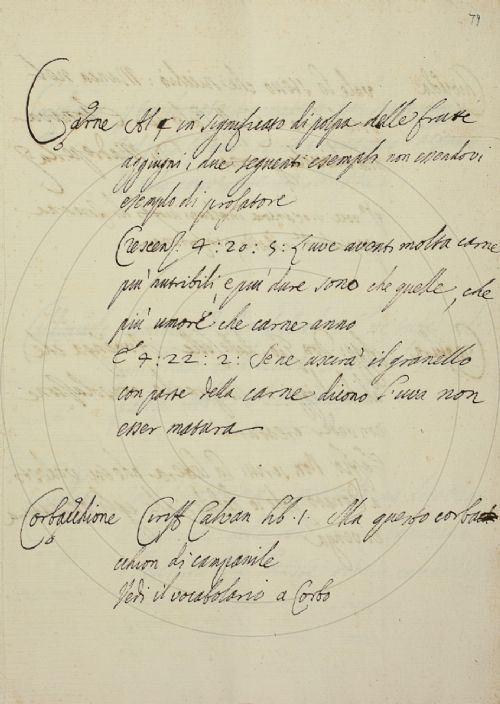 79
Carne Al 4 in significato di polpa delle frutte
aggiugni i due seguenti esempli non essendovi
esemplo di prosatore
Crescenz. 4 : 20 : 5 : L'uve aventi molta carne
più nutribili e più dure sono che quelle, che
più umore che carne anno
E 4 : 22 : 2 : Se ne uscirà il granello
con parte della carne dicono l'uva non
esser matura
Corbacchione Ciriff Calvan lib. 1. Ma questo corba
cchion di campanile
Vedi il vocabolario a Corbo